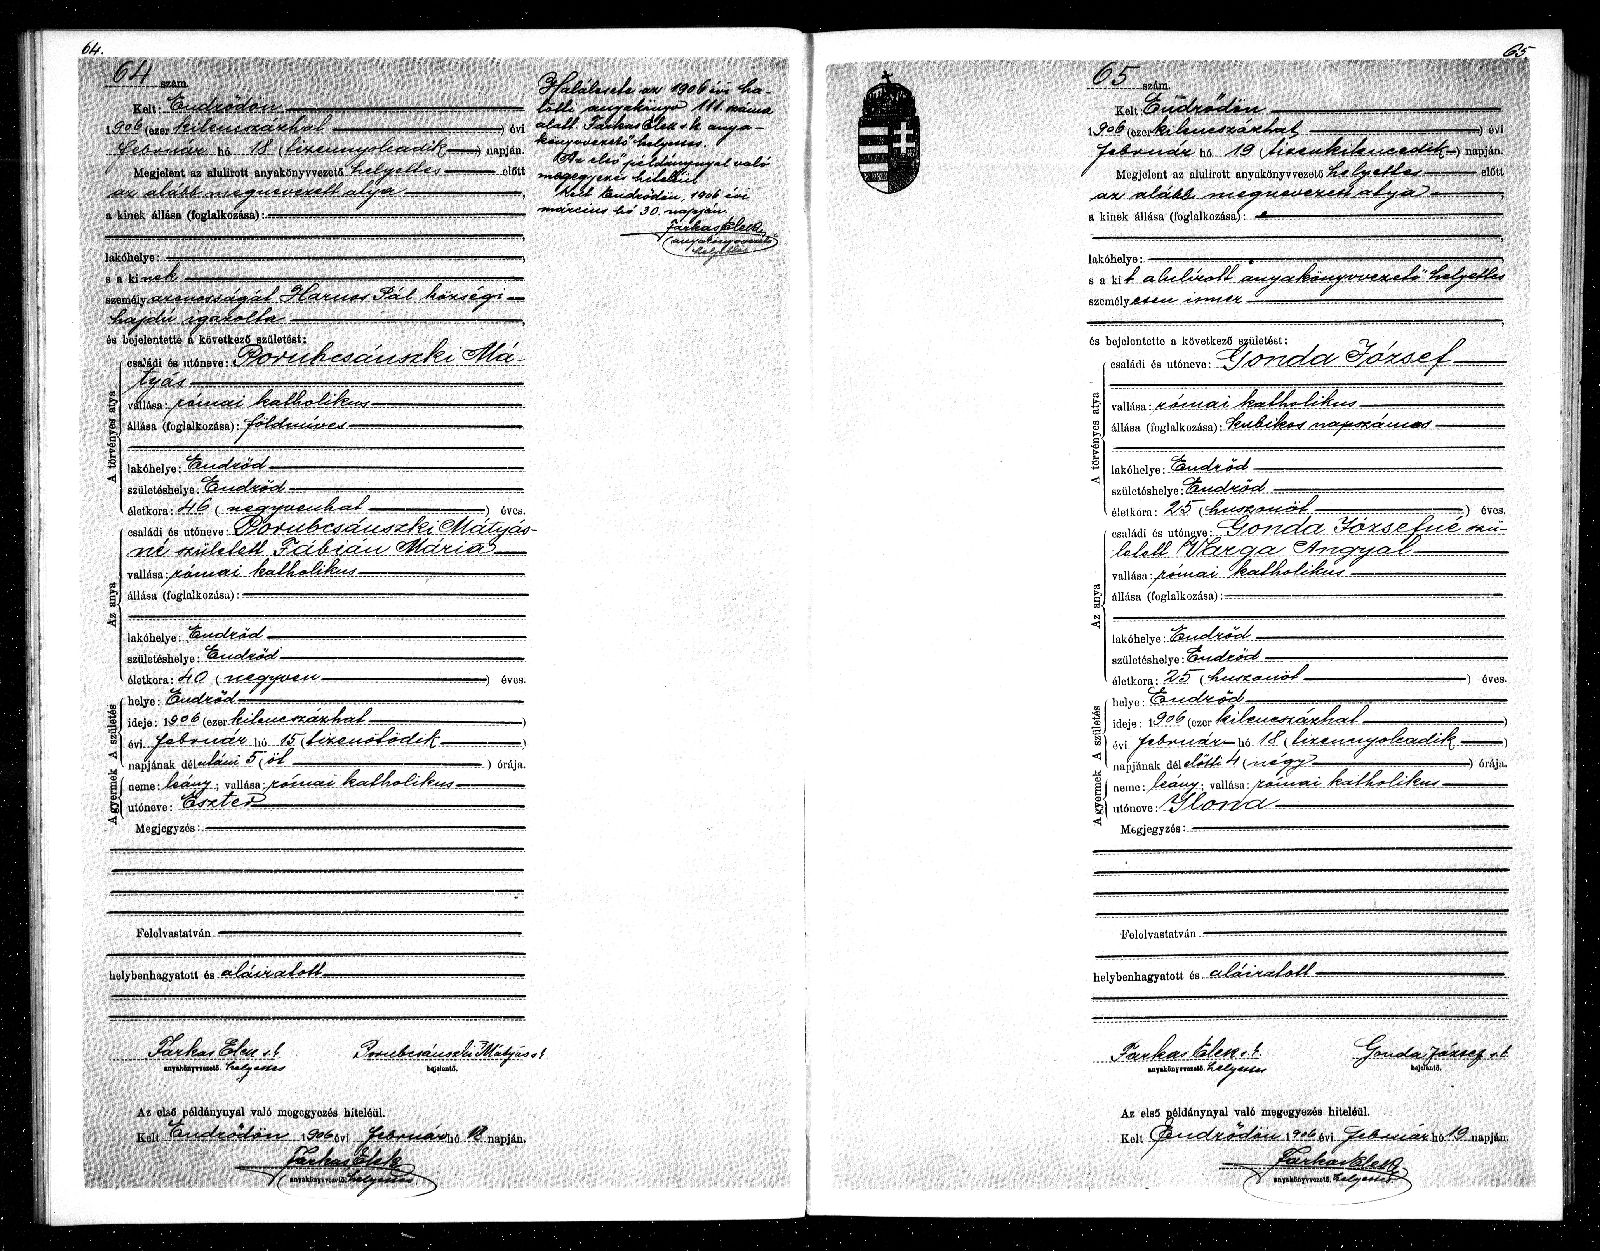 64.
64 szám
Kelt: Endrődön
1906 (ezer kilenczázhat ) évi
február hó 18 (tizennyolcadik ) napján.
Megjelent az alulirott anyakönyvvezető helyettes előtt
az alább megnevezett atya
a kinek állása (foglalkozása):
lakóhelye:
s a kinek
személyazonosságát Harnos Pál községi
hajdú igazolta
és bejelentette a következő születést:
A törvényes atya
családi és utóneve: Porubcsánszki Má-
tyás
vallása: római katholikus
állása (foglalkozása): földmíves
lakóhelye: Endrőd
születéshelye: Endrőd
életkora: 46 (negyvenhat ) éves.
Az anya
családi és utóneve: Porubcsánszki Mátyás-
né született Fábián Mária
vallása: római katholikus
állása (foglalkozása):
lakóhelye: Endrőd
születéshelye: Endrőd
életkora: 40 (negyven ) éves.
A születés
helye: Endrőd
ideje: 1906 (ezer kilenczszázhat )
évi február hó 15 (tizenötödik )
napjának délutáni 5 (öt ) órája.
A gyermek
neme: leány; vallása: római katholikus
utóneve: Eszter
Megjegyzés:
Felolvastatván
helybenhagyatott és aláiratott
Farkas Elek s.k. Porubcsánszki Mátyás s.k.
anyakönyvvezető helyettes bejelentő.
Az első példánynyal való megegyezés hiteléül.
Kelt Endrődön 1906 évi február hó 18 napján.
Farkas Elek
anyakönyvvezető helyettes
Halálesete az 1906 évi ha-
lotti anyakönyv 111 száma
alatt. Farkas Elek s.k. anya-
könyvvezető helyettes.
Az első példánynyal való
megegyezés hiteléül
Kelt Endrődön, 1906 évi
március hó 30. napján.
Farkas Elek
anyakönyvvezető
helyettes
65.
65 szám.
Kelt Endrődön
1906 (ezer kilenczszázhat ) évi
február hó 19 (tizenkilencedik ) napján.
Megjelent az alulirott anyakönyvvezető helyettes előtt
az alább megnevezett atya
a kinek állása (foglalkozása):
lakóhelye:
s a kit alulírott anyakönyvvezető helyettes
személyesen ismer
és bejelentette a következő születést:
A törvényes atya
családi és utóneve: Gonda József
vallása: római katholikus
állása (foglalkozása): kubikos napszámos
lakóhelye: Endrőd
születéshelye: Endrőd
életkora: 25 (huszonöt ) éves.
Az anya
családi és utóneve: Gonda Józsefné szü-
letett Varga Angyal
vallása: római katholikus
állása (foglalkozása):
lakóhelye: Endrőd
születéshelye: Endrőd
életkora: 25 (huszonöt ) éves.
A születés
helye: Endrőd
ideje: 1906 (ezer kilenczszázhat )
évi február hó 18 (tizennyolcadik )
napjának délelőtti 4 (négy ) órája.
A gyermek
neme: leány; vallása: római katholikus
utóneve: Ilona
Megjegyzés:
Felolvastatván
helybenhagyatott és aláiratott
Farkas Elek s.k. Gonda József s.k.
anyakönyvvezető helyettes bejelentő.
Az első példánynyal való megegyezés hiteléül.
Kelt Endrődön 1906 évi február hó 19 napján.
Farkas Elek
anyakönyvvezető helyettes